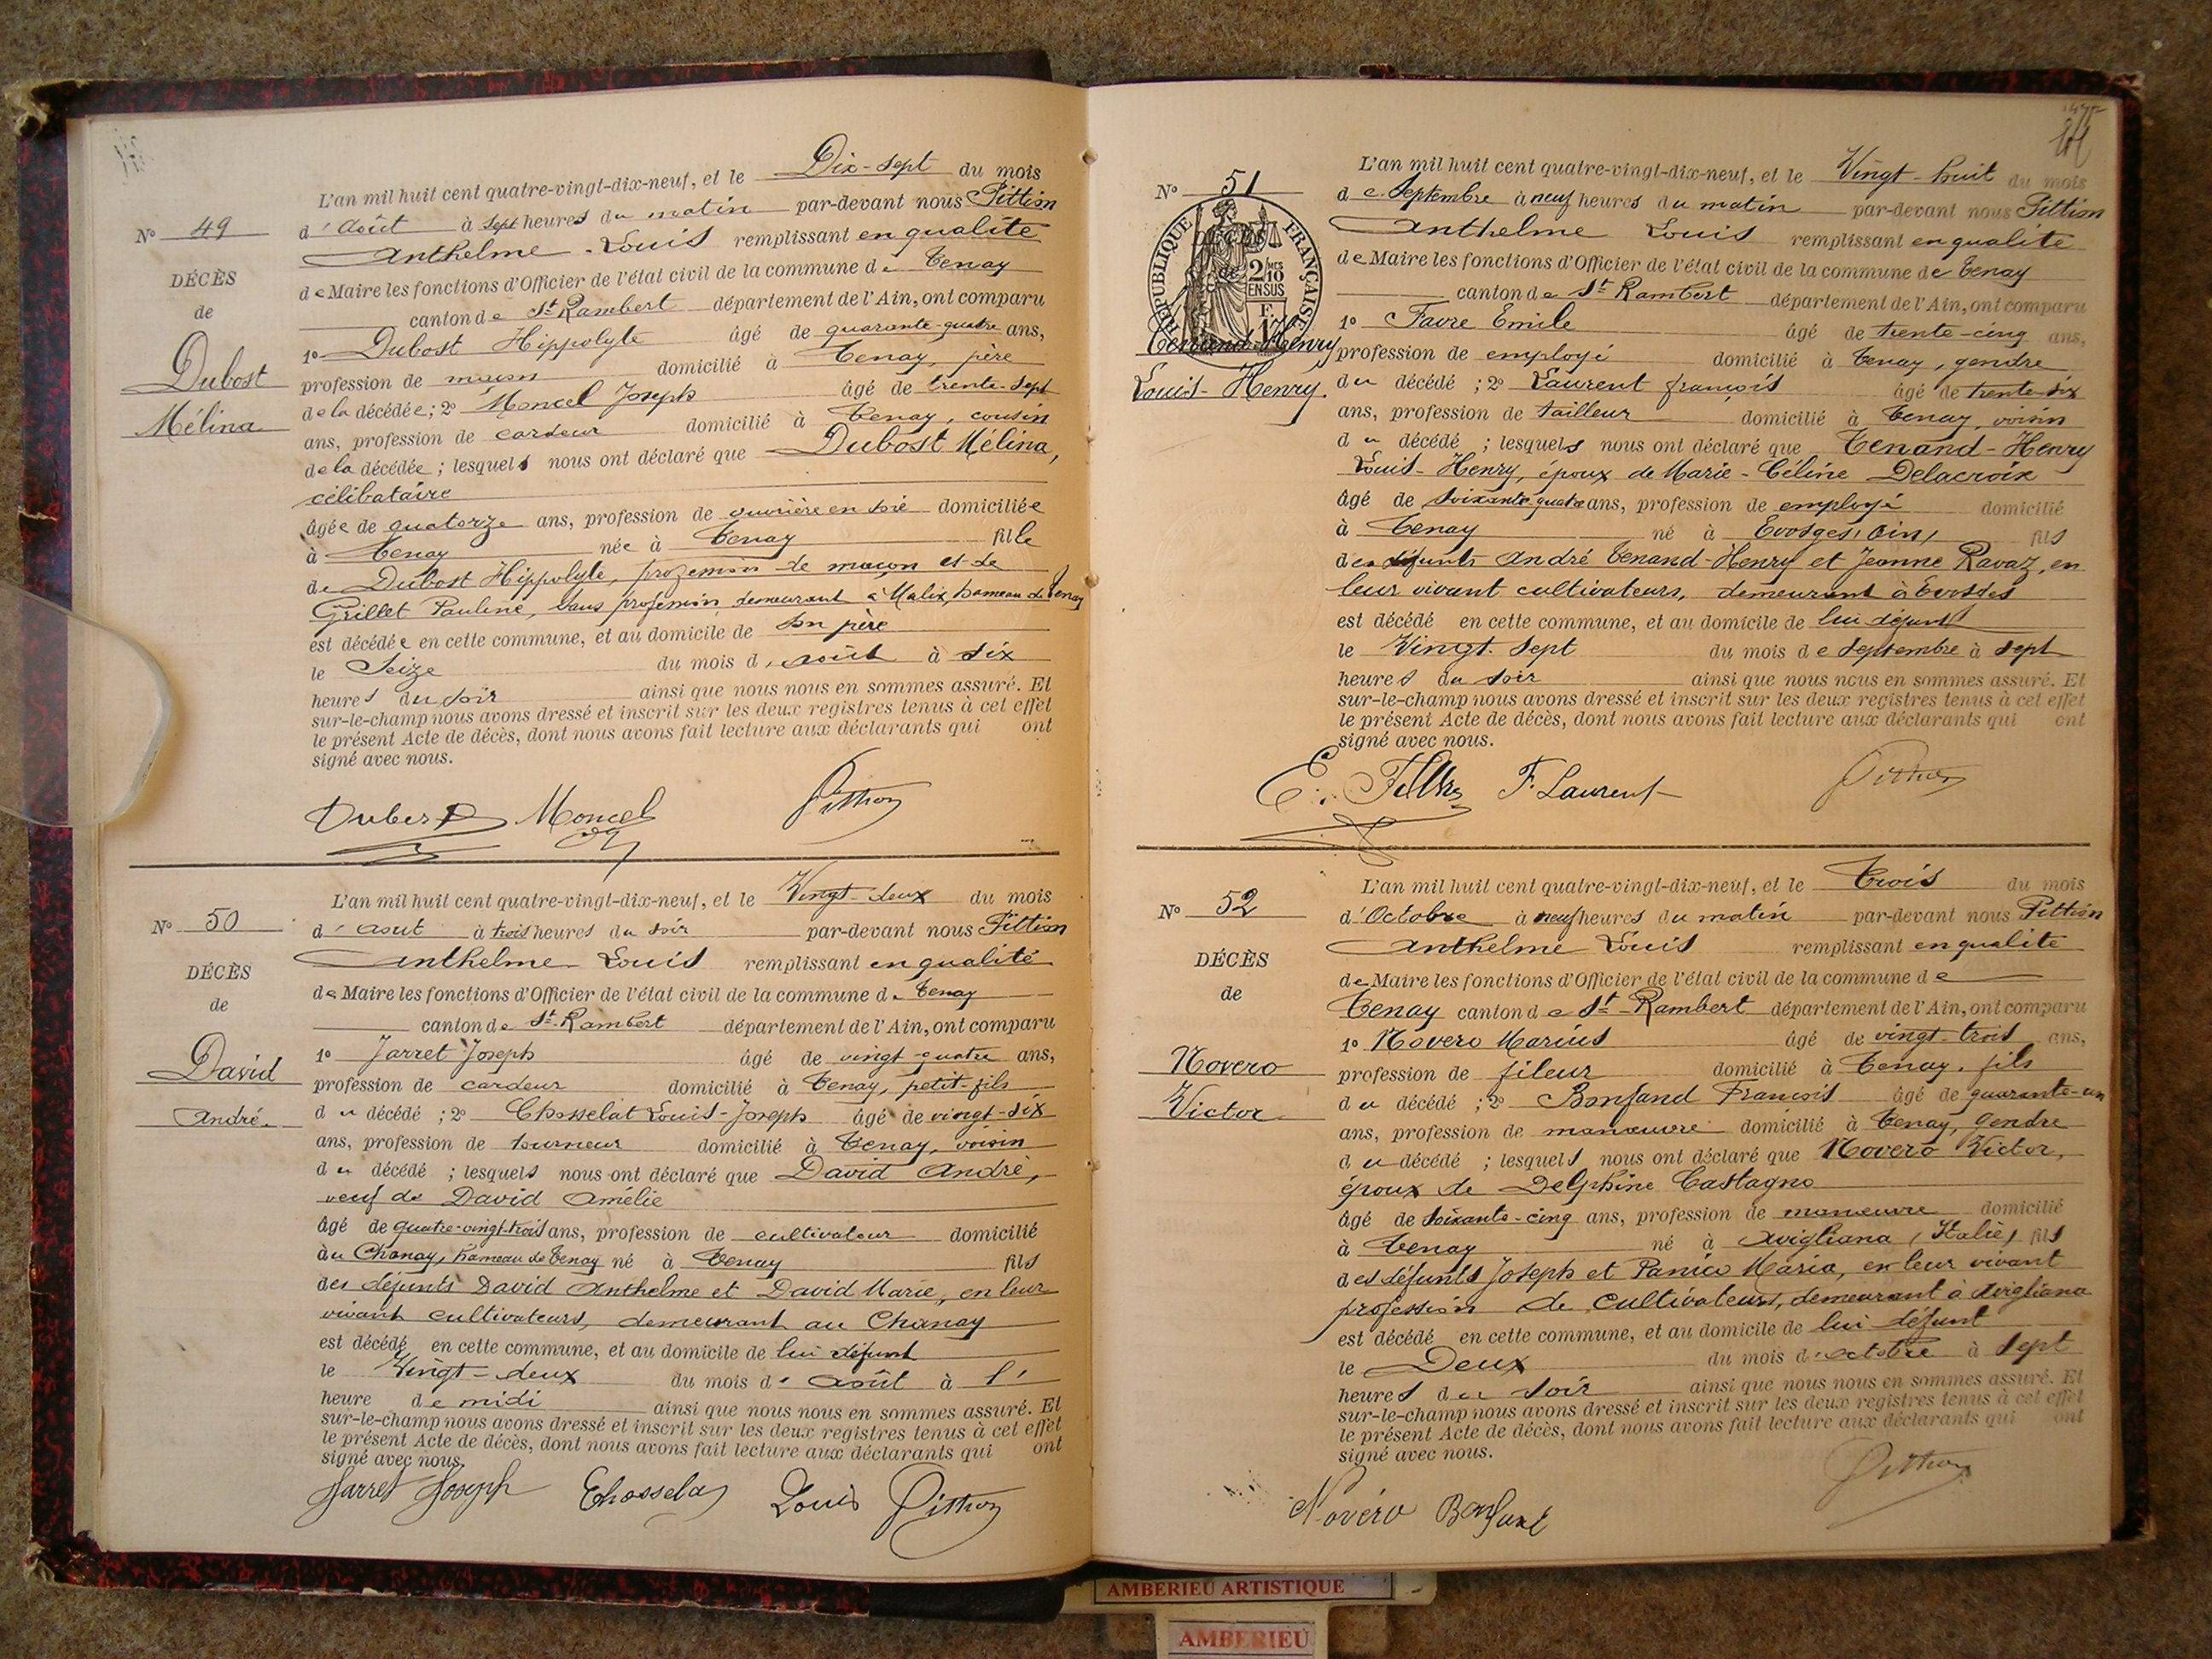 L'an mil huit cent quatre-vingt-dix-neuf, et le Dix-sept du mois
N° 49 d'Août à sept heures du matin par-devant nous Pittion
Anthelme Louis remplissant en qualité
DÉCÈS de Maire les fonctions d'Officier de l'état civil de la commune de Tenay
de canton de St Rambert département de l'Ain, ont comparu
1° Dubost Hippolyte âgé de quarante-quatre ans,
Dubost profession de maçon domicilié à Tenay, père
de la décédée; 2° Moncel Joseph âgé de trente-sept
Mélina ans, profession de cardeur domicilié à Tenay, cousin
de la décédée; lesquels nous ont déclaré que Dubost Mélina,
célibataire
âgée de quatorze ans, profession de ouvrière en soie domiciliée
à Tenay née à Tenay fille
de Dubost Hippolyte, profession de maçon et de
Grillet Pauline, sans profession demeurant à Malix, hameau de Tenay
est décédée en cette commune, et au domicile de son père
le Seize du mois d'août à six
heures du soir ainsi que nous nous en sommes assuré. Et
sur-le-champ nous avons dressé et inscrit sur les deux registres tenus à cet effet
le présent Acte de décès, dont nous avons fait lecture aux déclarants qui ont
signé avec nous.
Dubost Moncel Pittion
L'an mil huit cent quatre-vingt-dix-neuf, et le Vingt-deux du mois
N° 50 d'août à trois heures du soir par-devant nous Pittion
Anthelme Louis remplissant en qualité
DÉCÈS de Maire les fonctions d'Officier de l'état civil de la commune de Tenay
de canton de St-Rambert département de l'Ain, ont comparu
1° Jarret Joseph âgé de vingt-quatre ans,
David profession de cardeur domicilié à Tenay, petit-fils
André du décédé; 2° Chosselat Louis-Joseph âgé de vingt-six
ans, profession de tourneur domicilié à Tenay, voisin
du décédé; lesquels nous ont déclaré que David André,
veuf de David Amélie
âgé de quatre-vingt-trois ans, profession de cultivateur domicilié
au Chanay, hameau de Tenay né à Tenay fils
des défunts David Anthelme et David Marie, en leur
vivant cultivateurs, demeurant au Chanay
est décédé en cette commune, et au domicile de lui défunt
le Vingt-deux du mois d'août à l'
heure de midi ainsi que nous nous en sommes assuré. Et
sur-le-champ nous avons dressé et inscrit sur les deux registres tenus à cet effet
le présent Acte de décès, dont nous avons fait lecture aux déclarants qui ont
signé avec nous.
Jarret Joseph Chosselat Louis Pittion
L'an mil huit cent quatre-vingt-dix-neuf, et le Vingt-huit du mois
N° 51 de Septembre à neuf heures du matin par-devant nous Pittion
Anthelme Louis remplissant en qualité
de Maire les fonctions d'Officier de l'état civil de la commune de Tenay
canton de St Rambert département de l'Ain, ont comparu
RÉPUBLIQUE FRANÇAISE
2/10MES EN SUS
1° Favre Emile âgé de trente-cinq ans,
Tenand-Henry profession de employé domicilié à Tenay, gendre
Louis-Henry. du décédé; 2° Laurent françois âgé de trente-six
ans, profession de tailleur domicilié à Tenay, voisin
du décédé; lesquels nous ont déclaré que Tenand-Henry
Louis-Henry, époux de Marie-Céline Delacroix
âgé de soixante-quatre ans, profession de employé domicilié
à Tenay né à Evosges, Ain, fils
des défunts André Tenand-Henry et Jeanne Ravaz, en
leur vivant cultivateurs, demeurant à Evosges
est décédé en cette commune, et au domicile de lui défunt
le Vingt-sept du mois de septembre à sept
heures du soir ainsi que nous nous en sommes assuré. Et
sur-le-champ nous avons dressé et inscrit sur les deux registres tenus à cet effet
le présent Acte de décès, dont nous avons fait lecture aux déclarants qui ont
signé avec nous.
E. F. Laurent Pittion
L'an mil huit cent quatre-vingt-dix-neuf, et le Trois du mois
N° 52 d'Octobre à neuf heures du matin par-devant nous Pittion
Anthelme Louis remplissant en qualité
DÉCÈS de Maire les fonctions d'Officier de l'état civil de la commune de
de Tenay canton de St-Rambert département de l'Ain, ont comparu
1° Novero Marius âgé de vingt-trois ans,
Novero profession de fileur domicilié à Tenay, fils
Victor du décédé; 2° Bonfand François âgé de quarante-un
ans, profession de manœuvre domicilié à Tenay, gendre
du décédé; lesquels nous ont déclaré que Novero Victor,
époux de Delphine Castagno
âgé de soixante-cinq ans, profession de manœuvre domicilié
à Tenay né à Avigliana (Italie) fils
des défunts Joseph et Panico Maria, en leur vivant
profession de cultivateurs, demeurant à Avigliana
est décédé en cette commune, et au domicile de lui défunt
le Deux du mois d'octobre à sept
heures du soir ainsi que nous nous en sommes assuré. Et
sur-le-champ nous avons dressé et inscrit sur les deux registres tenus à cet effet
le présent Acte de décès, dont nous avons fait lecture aux déclarants qui ont
signé avec nous.
Novéro Bonfand Pittion
AMBERIEU ARTISTIQUE
AMBERIEU